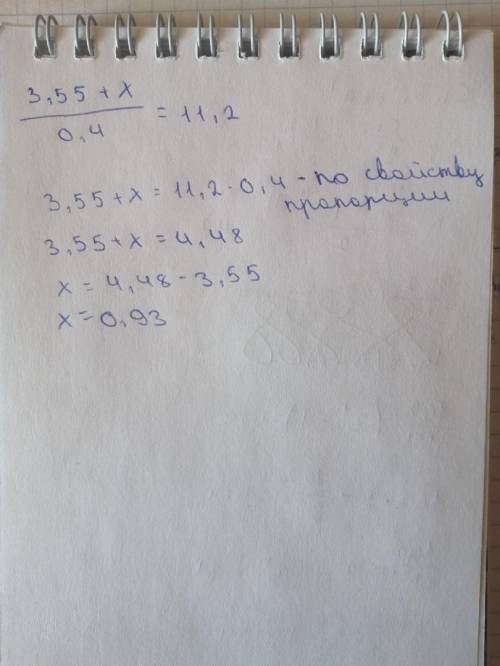 3,55 + x / 0,4 = 11,2
3,55 + x = 11,2 · 0,4 - по свойству
пропорции
3,55 + x = 4,48
x = 4,48 - 3,55
x = 0,93